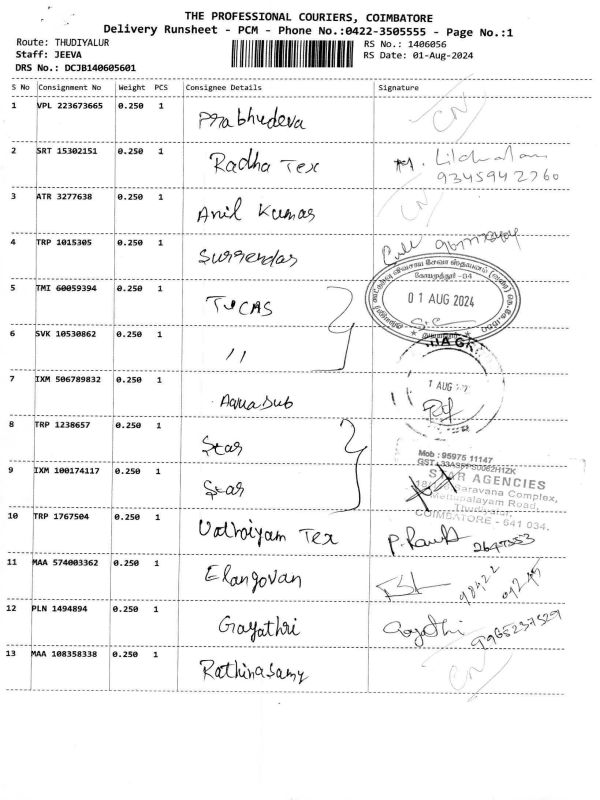 THE PROFESSIONAL COURIERS, COIMBATORE
Delivery Runsheet - PCM - Phone No.:0422-3505555 - Page No.:1
Route: THUDIYALUR RS No.: 1406056
Staff: JEEVA RS Date: 01-Aug-2024
DRS No.: DCJB140605601
S No Consignment No Weight PCS Consignee Details Signature
1 VPL 223673665 0.250 1 Prabhudeva CN
2 SRT 15302151 0.250 1 Radha Tex
9345942760
3 ATR 3277638 0.250 1 Anil Kumar CN
4 TRP 1015305 0.250 1 Surrendar
5 TMI 60059394 0.250 1 TUCAS
கோயமுத்தூர் -04
01 AUG 2024
6 SVK 10530862 0.250 1 11
7 IXM 506789832 0.250 1 Aquasub 11
1 AUG
8 TRP 1238657 0.250 1 Star
Mob : 95975 11147
9 IXM 100174117 0.250 1 Star
STAR AGENCIES
Saravana Complex,
Mettupalayam Road,
Thudiyalur,
COIMBATORE - 641 034.
10 TRP 1767504 0.250 1 Vathaiyam Tex
11 MAA 574003362 0.250 1 Elangovan 98422
12 PLN 1494894 0.250 1 Gayathri Gayathri 9965237529
13 MAA 108358338 0.250 1 Rathinasamy CN